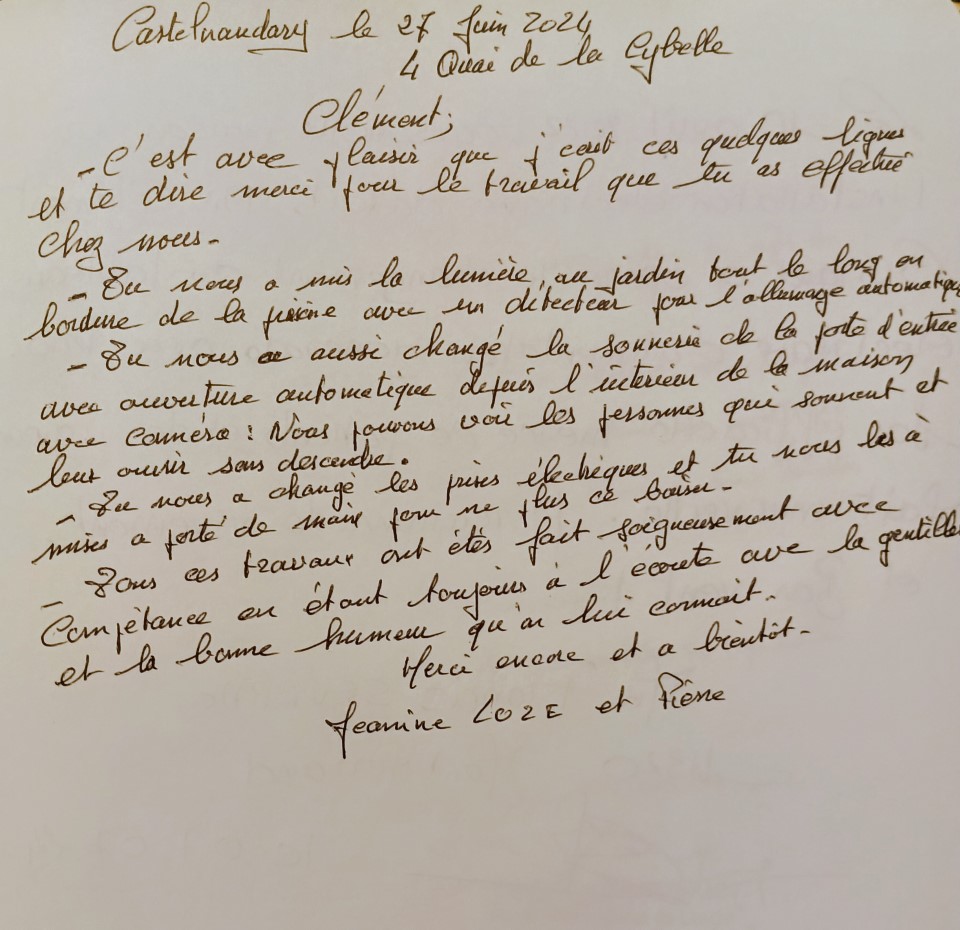 Castelnaudary le 27 Juin 2024
4 Quai de la Cybelle
Clément;
- C'est avec plaisir que j'écrit ces quelques lignes
et te dire merci pour le travail que tu as effectué
chez nous-
- Tu nous a mis la lumière au jardin tout le long en
bordure de la piscine avec un détecteur pour l'allumage automatique
- Tu nous a aussi changé la sonnerie de la porte d'entrée
avec ouverture automatique depuis l'interieur de la maison
avec caméra : Nous pouvons voir les personnes qui sonnent et
leur ouvrir sans descendre.
- Tu nous a changé les prises électriques et tu nous les à
mises a porté de main pour ne plus ce baisser-
- Tous ces travaux ont étés fait soigneusement avec
Compètance en étant toujours à l'écoute avec la gentilles
et la bonne humeur qu'on lui connait-
Merci encore et a bientôt-
Jeanine LOZE et Pierre